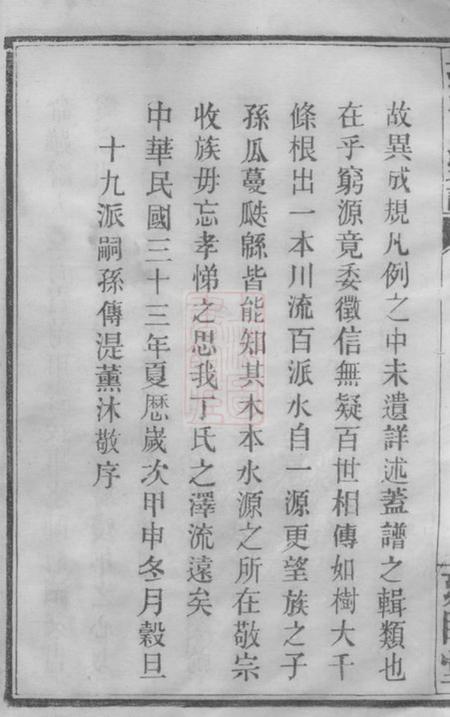 故異成規凡例之中未遺詳述蓋譜之輯類也
在乎窮源竟委徵信無疑百世相傳如樹大千
條根出一本川流百派水自一源更望族之子
孫瓜蔓瓞緜皆能知其木本水源之所在敬宗
收族毋忘孝悌之思我丁氏之澤流遠矣
中華民國三十三年夏歷歲次甲申冬月穀旦
十九派嗣孫傳湜薰沐敬序